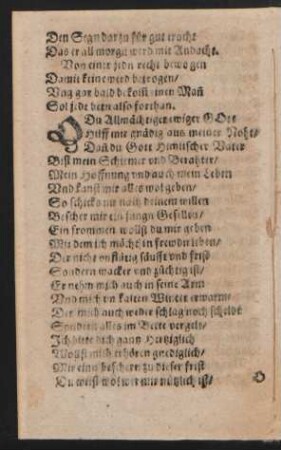 Den Segn darzu für gut eracht
Das er all morgn wird mit Andacht.
Von einer jedn recht bewogen
Damit keine werd betrogen/
Vnd gar bald bekom̃ einen Mañ
Sol jede bern also forthan.
DV Allmächtiger ewiger GOtt
Hilff mir gnädig aus meiner Noht/
Dañ du Gott Himlischer Vater
Bist mein Schirmer und Berahter/
Mein Hoffnung vnd auch mein Leben
Vnd kanst mir alles wol geben/
So schicks nu nach deinem willen
Bescher mir ein jungn Gesellen/
Ein frommen wollst du mir geben
Mit dem ich möcht in frewdn leben/
Der nicht vnflätig säufft vnd frist
Sondern wacker und züchtig ist/
Er nehm mich auch in seine Arm
Vnd mich im kalten Winter erwarm/
Der mich auch weder schlag noch schelde
Sondern alles im Bette vergelt/
Ich bitte dich gantz Hertziglich
Wollst mich erhören gnediglich/
Mir ein beschern zu dieser frist
Du weist wol wer mir nützlich ist/